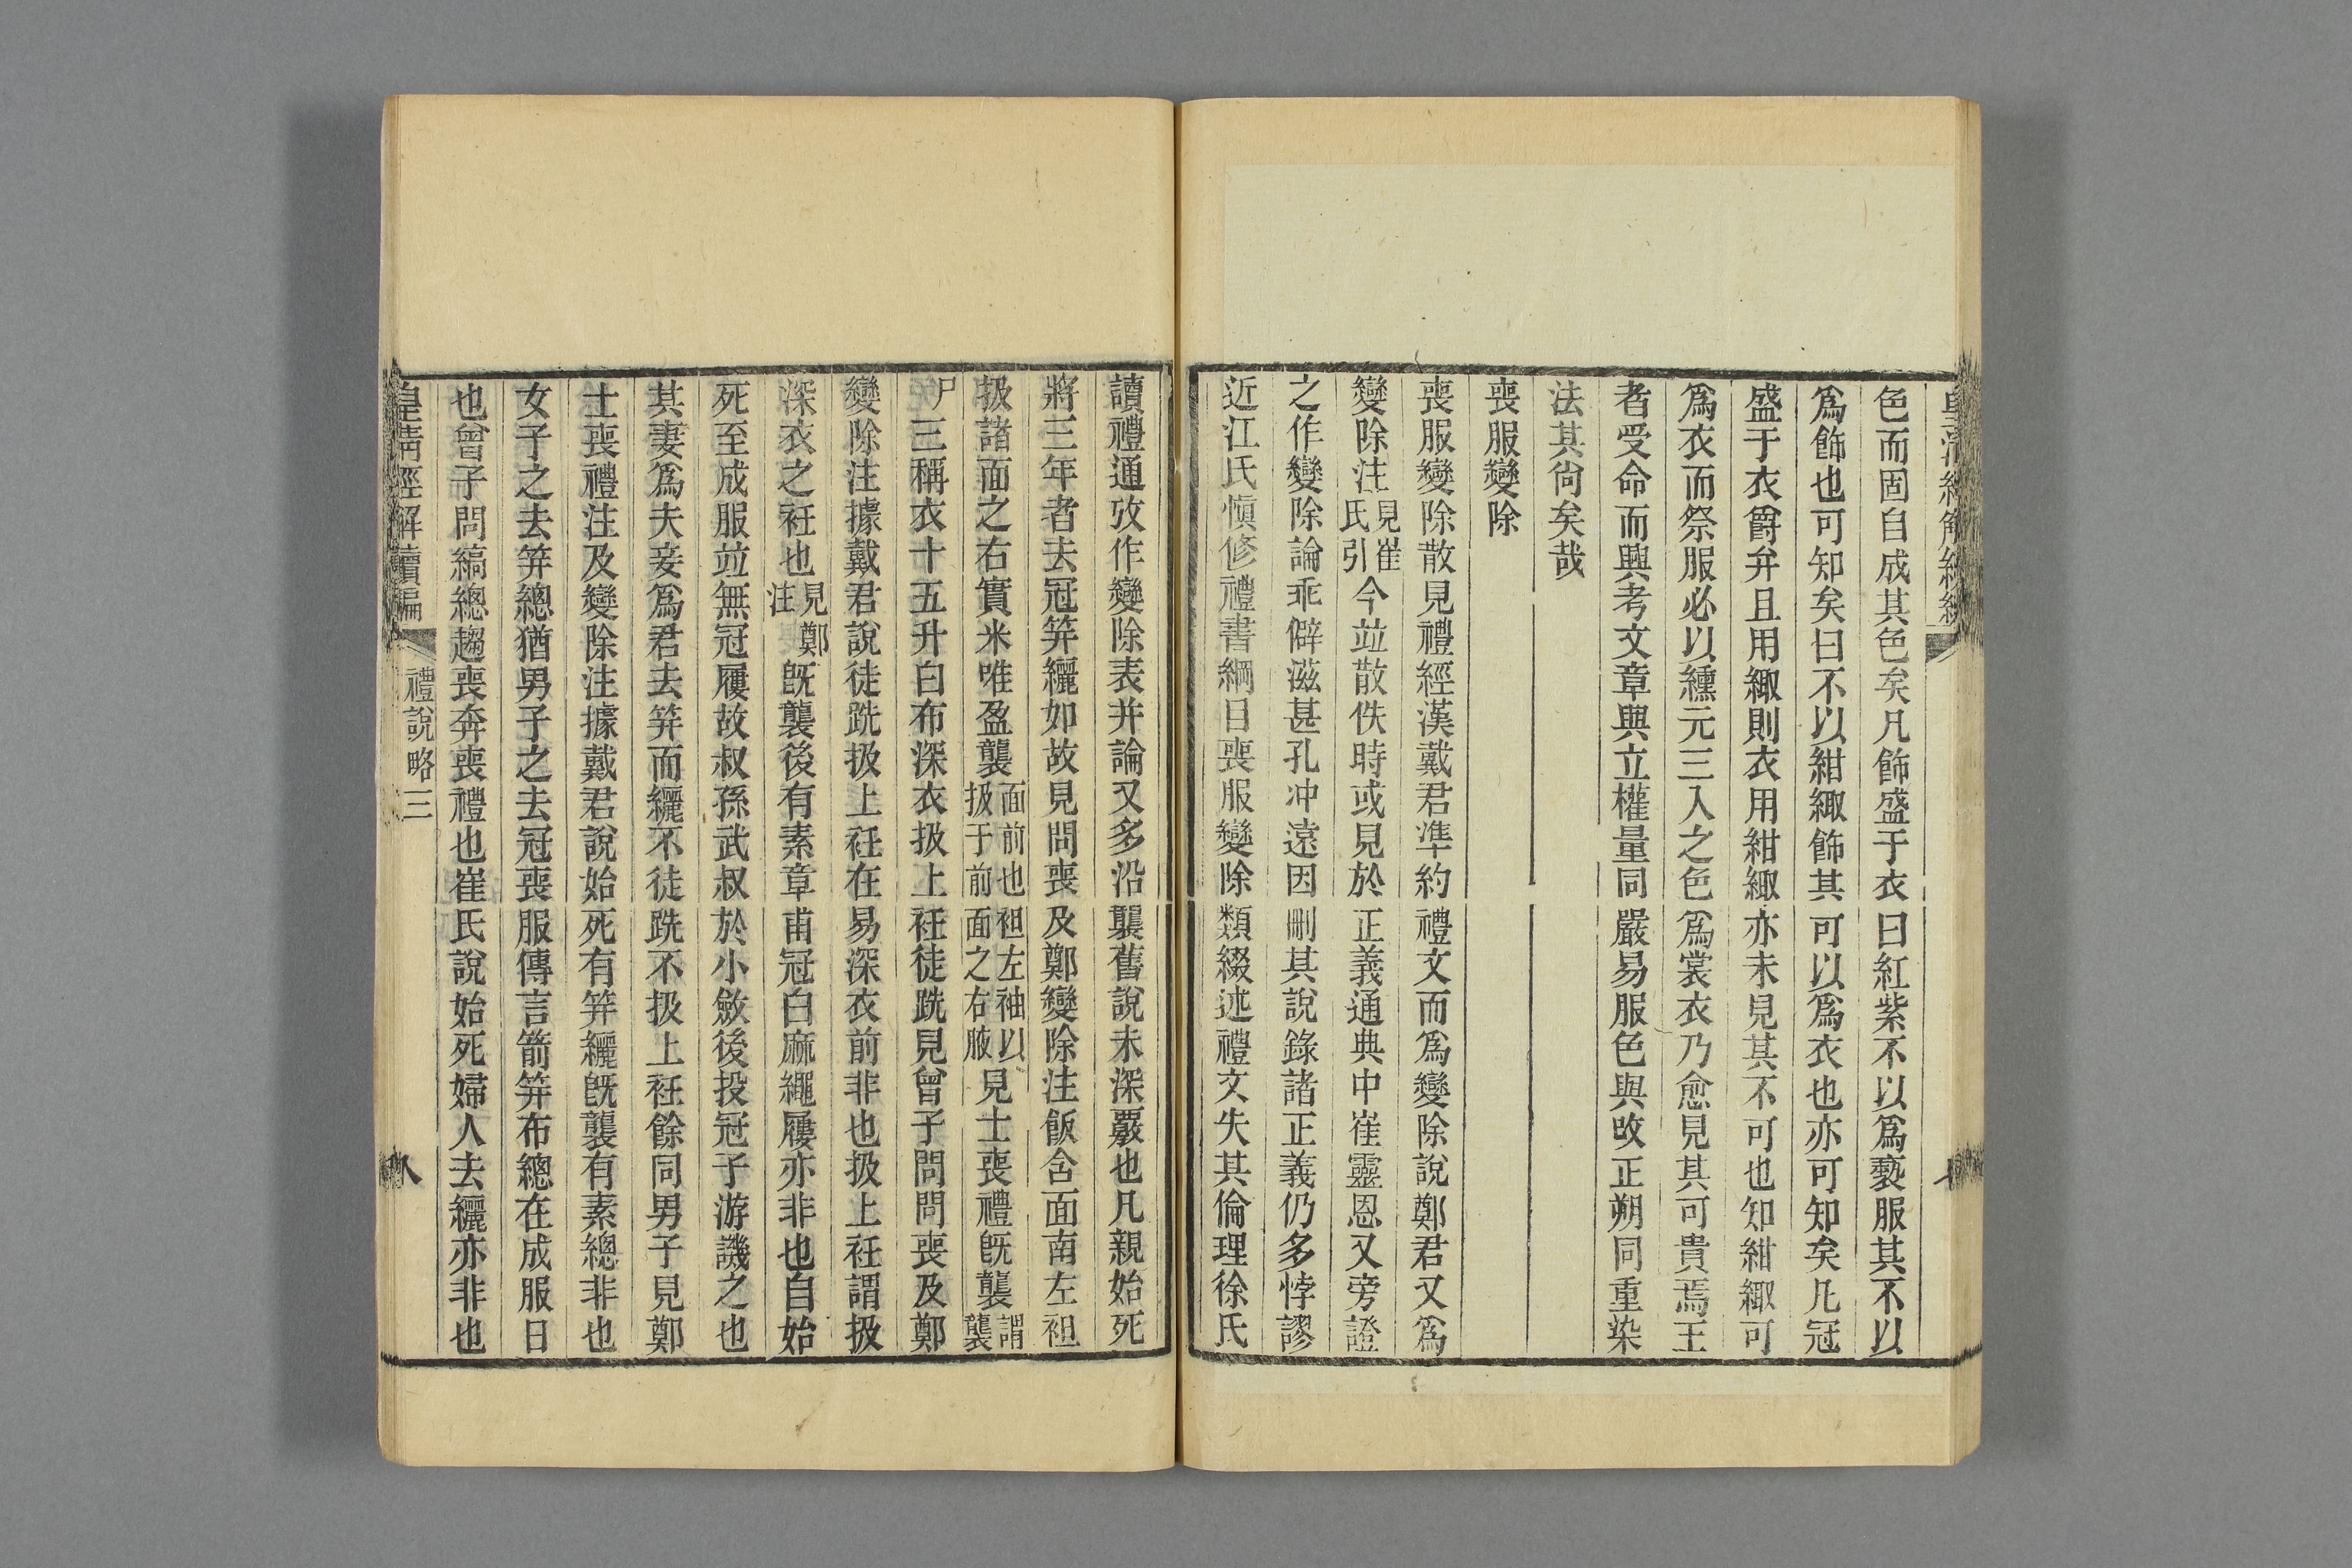 色而固自成其色矣凡飾盛于衣曰紅紫不以爲褻服其不以
爲飾也可知矣曰不以紺緅飾其可以爲衣也亦可知矣凡冠
盛于衣爵弁且用緅則衣用紺緅亦未見其不可也知紺緅可
爲衣而祭服必以纁元三入之色爲裳衣乃愈見其可貴焉王
者受命而興考文章興立權量同嚴易服色與改正朔同重染
法其尙矣哉
喪服變除
喪服變除散見禮經漢戴君準約禮文而爲變除說鄭君又爲
變除注見崔氏引今竝散佚時或見於正義通典中崔靈恩又旁證
之作變除論乖僻滋甚孔冲遠因刪其說錄諸正義仍多悖謬
近江氏愼修禮書綱目喪服變除類綴述禮文失其倫理徐氏
讀禮通攷作變除表并論又多沿襲舊說未深覈也凡親始死
將三年者去冠笄纚如故見問喪及鄭變除注飯含面南左袒
扱諸面之右實米唯盈襲面前也扱于前袒左袖以面之右腋見士喪禮旣襲謂襲
尸三稱衣十五升白布深衣扱上衽徒跣見曾子問問喪及鄭
變除注據戴君說徒跣扱上衽在易深衣前非也扱上衽謂扱
深衣之衽也見鄭注旣襲後有素章甫冠白麻繩屨亦非也自始
死至成服竝無冠屨故叔孫武叔於小斂後投冠子游譏之也
其妻爲夫妾爲君去笄而纚不徒跣不扱上衽餘同男子見鄭
士喪禮注及變除注據戴君說始死有笄纚旣襲有素總非也
女子之去笄總猶男子之去冠喪服傳言箭笄布總在成服日
也曾子問縞總趨喪奔喪禮也崔氏說始死婦人去纚亦非也
皇淸經解續編
禮說略三
八